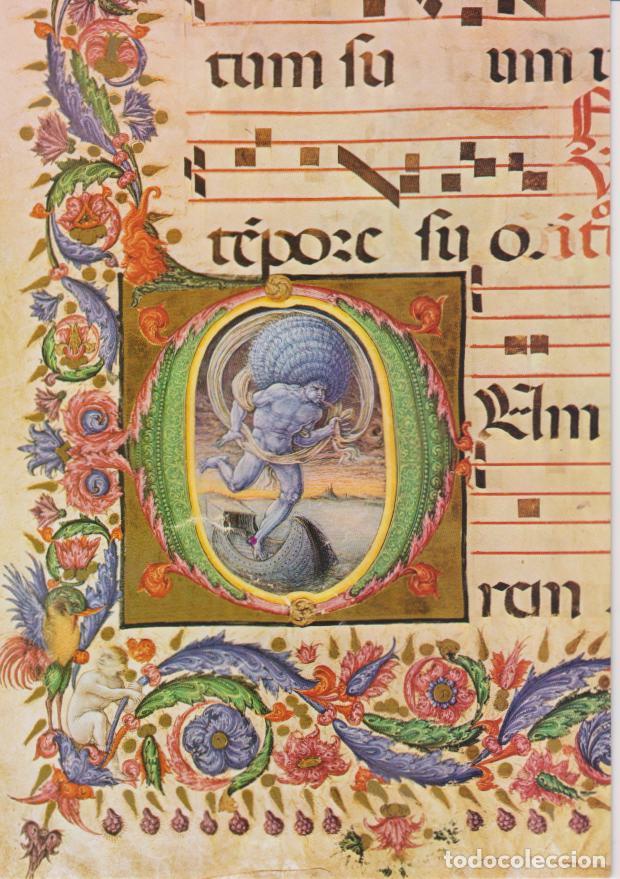 tum su um
tēpore su o.
Am
rem
todocoleccion